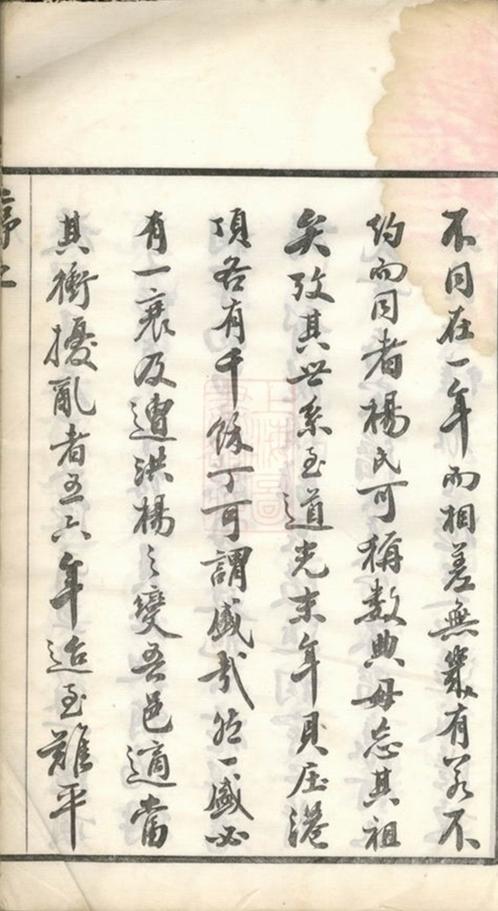 不同在一年而相差無幾有若不
約而同者楊氏可稱数典毋忘其祖
矣攷其世系至道光末年貝庄港
項各有千餘丁可謂盛哉然一盛必
有一衰及遭洪楊之變吾邑適當
其衝擾亂者五六年迨至難平
序二